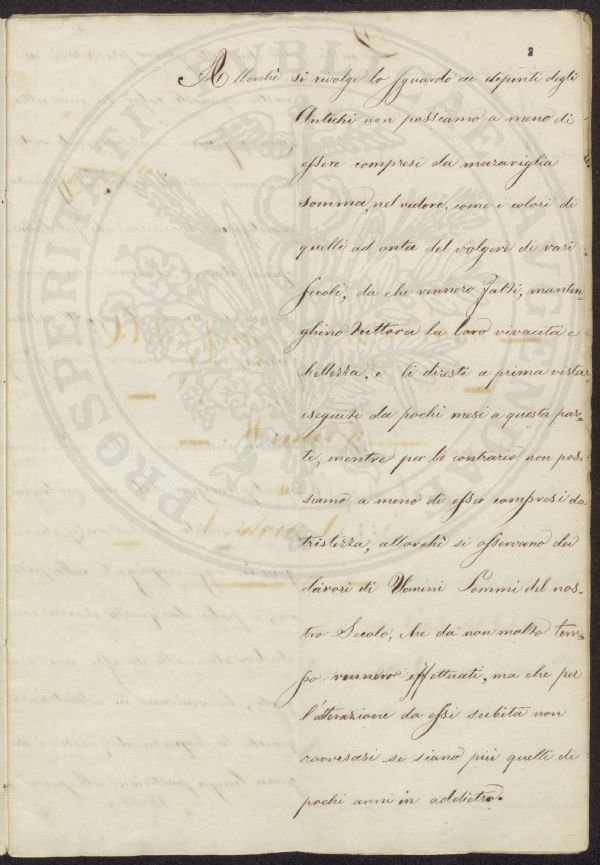 2
Allorchè si rivolge lo sguardo ai dipinti degli
Antichi non possiamo a meno di
essere compresi da maraviglia
somma, nel vedere, come i colori di
quelli ad onta del volgere di vari
secoli, da che vennero fatti, manten-
ghino tuttora la loro vivacità e
bellezza, e li diresti a prima vista
eseguiti da pochi mesi a questa par-
te, mentre per lo contrario non pos-
siamo a meno di esser compresi da
tristezza, allorchè si osservano dei
lavori di Uomini Sommi del nos-
tro Secolo, che da non molto tem-
po vennero effettuati, ma che per
l'alterazione da essi subita non
ravvisasi se siano più quelli di
pochi anni in addietro.
PROSPERITATI PVBLICAE